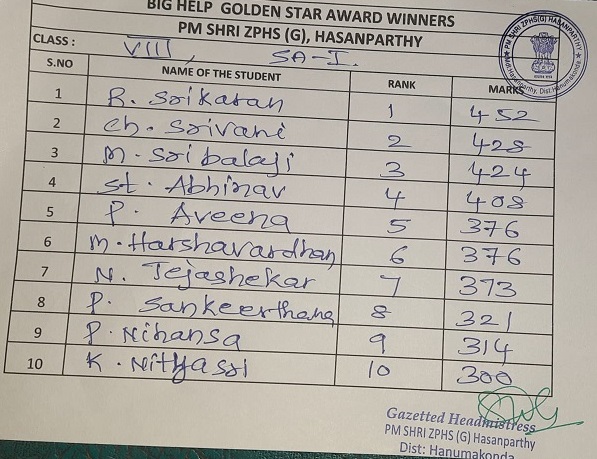 BIG HELP GOLDEN STAR AWARD WINNERS
PM SHRI ZPHS (G), HASANPARTHY
CLASS : VIII, SA-I.
S.NO NAME OF THE STUDENT RANK MARKS
1 B. Srikaran 1 452
2 Ch. Srivani 2 428
3 M. Sri balaji 3 424
4 St. Abhinav 4 408
5 P. Aveena 5 376
6 M. Harshavardhan 6 376
7 N. Tejashekar 7 373
8 P. Sankeerthana 8 321
9 P. Nihansa 9 314
10 K. Nithyasri 10 300
PM SHRI ZPHS(G) HASANPARTHY
Hasanparthy, Dist: Hanumakonda.
Gazetted Headmistress
PM SHRI ZPHS (G) Hasanparthy
Dist: Hanumakonda